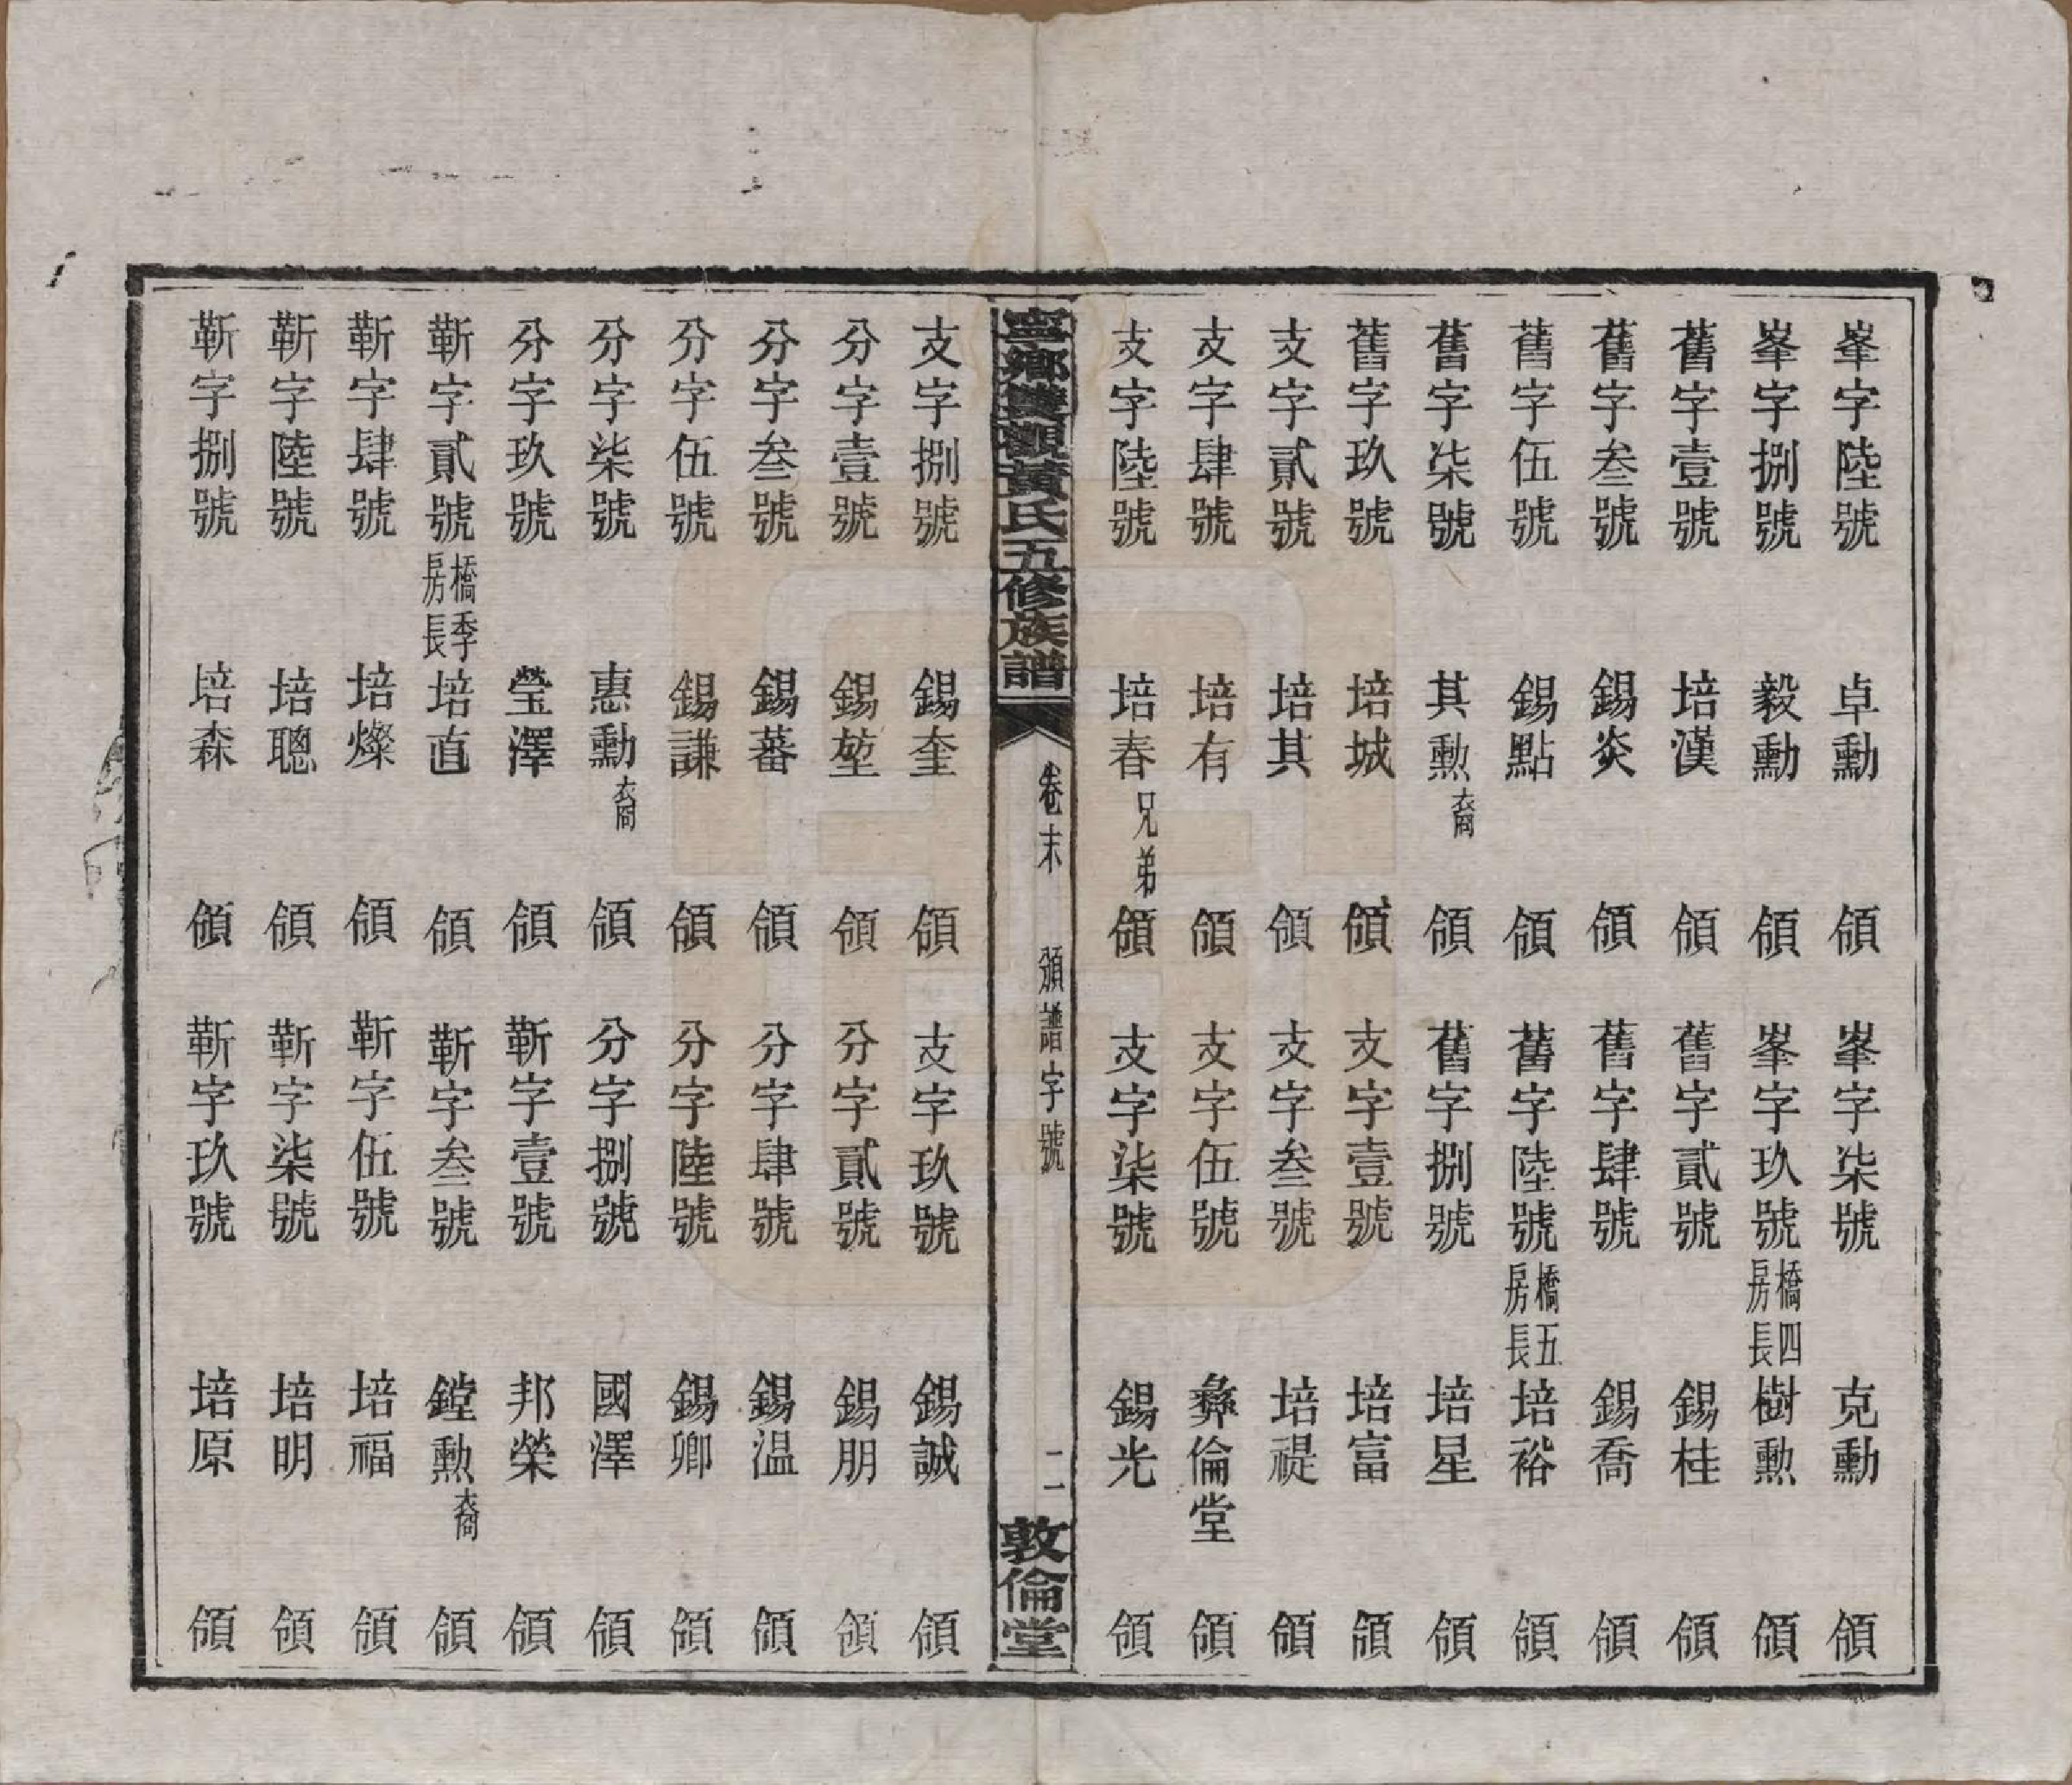 峯字陸號 卓勳 領 峯字柒號 克勳 領
峯字捌號 毅勳 領 峯字玖號 橋四房長 樹勲 領
舊字壹號 培漢 領 舊字貳號 錫桂 領
舊字叁號 錫炎 領 舊字肆號 錫喬 領
舊字伍號 錫點 領 舊字陸號 橋五房長 培裕 領
舊字柒號 其勲裔 領 舊字捌號 培星 領
舊字玖號 培城 領 支字壹號 培富 領
支字貳號 培其 領 支字叁號 培禔 領
支字肆號 培有 領 支字伍號 彝倫堂 領
支字陸號 培春兄弟 領 支字柒號 錫光 領
寧鄉雙觀黃氏五修族譜 卷末 頒譜字號 二 敦倫堂
支字捌號 錫奎 領 支字玖號 錫誠 領
分字壹號 錫堃 領 分字貳號 錫朋 領
分字叁號 錫蕃 領 分字肆號 錫温 領
分字伍號 錫謙 領 分字陸號 錫卿 領
分字柒號 惠勳裔 領 分字捌號 國澤 領
分字玖號 瑩澤 領 蘄字壹號 邦榮 領
蘄字貳號 橋季房長 培直 領 蘄字叁號 鏜勲裔 領
蘄字肆號 培燦 領 蘄字伍號 培福 領
蘄字陸號 培聰 領 蘄字柒號 培明 領
蘄字捌號 培森 領 蘄字玖號 培原 領